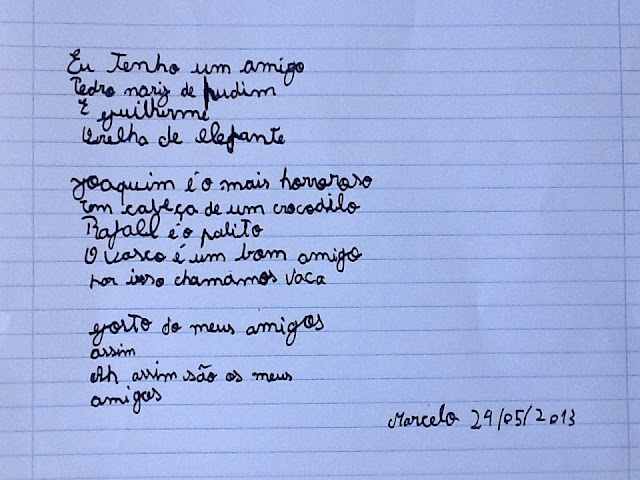 Eu Tenho um amigo
Pedro nariz de pudim
E guilherme
Orelha de elefante
Joaquim é o mais horroroso
tem cabeça de um crocodilo
Rafael é o palito
O Vasco é um bom amigo
por isso chamamos vaca
gosto do meus amigos
assim
Ah assim são os meus
amigos
Marcelo 29/05/2013